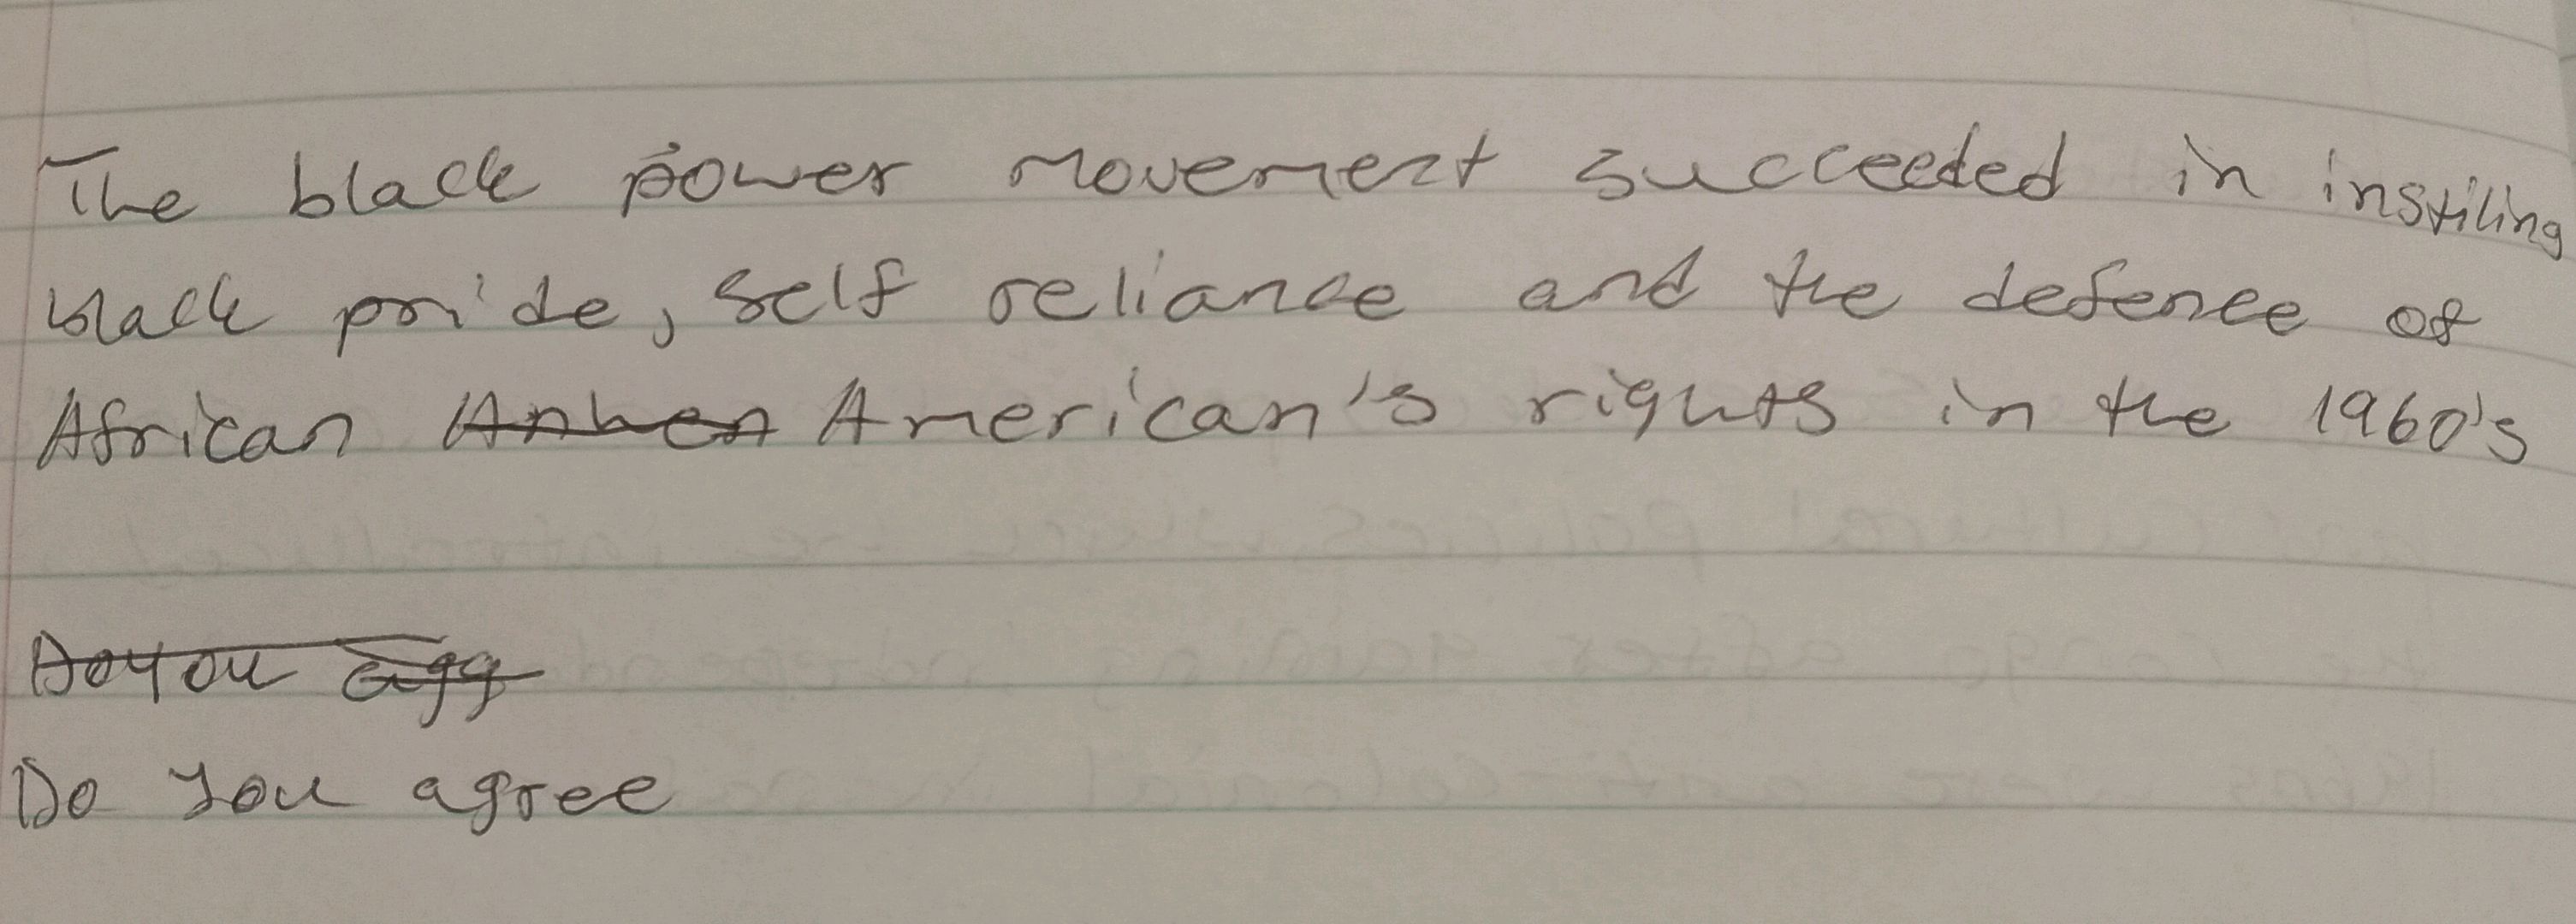 The black power movement succeeded in instiling
black pride, self reliance and the defence of
African American's rights in the 1960's
Do you agree